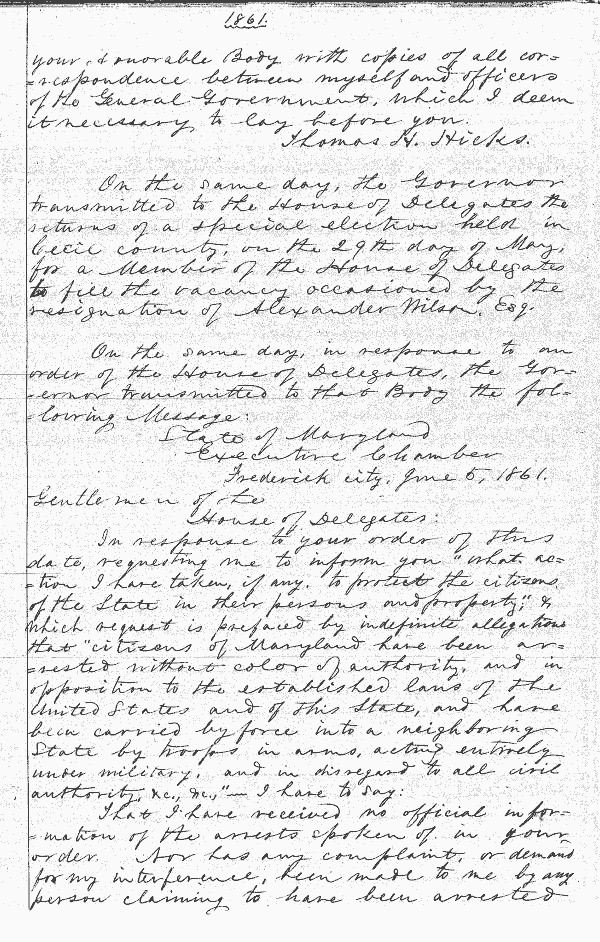 1861.
your Honorable Body with copies of all cor=
=respondence between myself and officers
of the General Government, which I deem
it necessary to lay before you.
Thomas H. Hicks.
On the same day, the Governor
transmitted to the House of Delegates the
returns of a special election held in
Cecil county, on the 29th day of May,
for a Member of the House of Delegates
to fill the vacancy occasioned by the
resignation of Alexander Wilson, Esq.
On the same day, in response to an
order of the House of Delegates, the Gov=
=ernor transmitted to that Body the fol=
=lowing Message:
State of Maryland
Executive Chamber
Frederick city, June 5, 1861.
Gentlemen of the
House of Delegates:
In response to your order of this
date, requesting me to inform you "what ac=
=tion I have taken, if any, to protect the citizens
of the State in their persons and property," &
which request is prefaced by indefinite allegations
that "citizens of Maryland have been ar=
=rested without color of authority, and in
opposition to the established laws of the
United States and of this State, and have
been carried by force into a neighboring
State by troops in arms, acting entirely
under military, and in disregard to all civil
authority, &c., &c.,"— I have to say:
That I have received no official infor=
=mation of the arrests spoken of in your
order. Nor has any complaint, or demand
for my interference, been made to me by any
person claiming to have been arrested